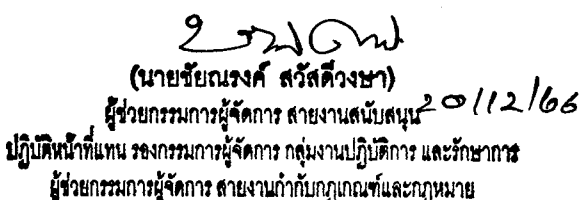 (นายชัยณรงค์ สวัสดีวงษา)
ผู้ช่วยกรรมการผู้จัดการ สายงานสนับสนุน 20/12/66
ปฏิบัติหน้าที่แทน รองกรรมการผู้จัดการ กลุ่มงานปฏิบัติการ และรักษาการ
ผู้ช่วยกรรมการผู้จัดการ สายงานกำกับกฎเกณฑ์และกฎหมาย